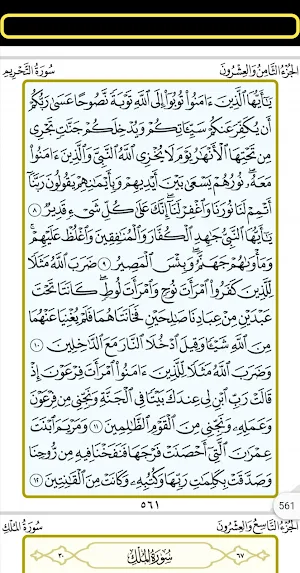 الجزء الثامن والعشرون
سورة التحريم
يَٰٓأَيُّهَا ٱلَّذِينَ ءَامَنُوا۟ تُوبُوٓا۟ إِلَى ٱللَّهِ تَوْبَةً نَّصُوحًا عَسَىٰ رَبُّكُمْ
أَن يُكَفِّرَ عَنكُمْ سَيِّـَٔاتِكُمْ وَيُدْخِلَكُمْ جَنَّٰتٍ تَجْرِى
مِن تَحْتِهَا ٱلْأَنْهَٰرُ يَوْمَ لَا يُخْزِى ٱللَّهُ ٱلنَّبِىَّ وَٱلَّذِينَ ءَامَنُوا۟
مَعَهُۥ ۖ نُورُهُمْ يَسْعَىٰ بَيْنَ أَيْدِيهِمْ وَبِأَيْمَٰنِهِمْ يَقُولُونَ رَبَّنَآ
أَتْمِمْ لَنَا نُورَنَا وَٱغْفِرْ لَنَآ ۖ إِنَّكَ عَلَىٰ كُلِّ شَىْءٍ قَدِيرٌ ٨
يَٰٓأَيُّهَا ٱلنَّبِىُّ جَٰهِدِ ٱلْكُفَّارَ وَٱلْمُنَٰفِقِينَ وَٱغْلُظْ عَلَيْهِمْ ۚ
وَمَأْوَىٰهُمْ جَهَنَّمُ ۖ وَبِئْسَ ٱلْمَصِيرُ ٩ ضَرَبَ ٱللَّهُ مَثَلًا
لِّلَّذِينَ كَفَرُوا۟ ٱمْرَأَتَ نُوحٍ وَٱمْرَأَتَ لُوطٍ ۖ كَانَتَا تَحْتَ
عَبْدَيْنِ مِنْ عِبَادِنَا صَٰلِحَيْنِ فَخَانَتَاهُمَا فَلَمْ يُغْنِيَا عَنْهُمَا
مِنَ ٱللَّهِ شَيْـًٔا وَقِيلَ ٱدْخُلَا ٱلنَّارَ مَعَ ٱلدَّٰخِلِينَ ١٠
وَضَرَبَ ٱللَّهُ مَثَلًا لِّلَّذِينَ ءَامَنُوا۟ ٱمْرَأَتَ فِرْعَوْنَ إِذْ
قَالَتْ رَبِّ ٱبْنِ لِى عِندَكَ بَيْتًا فِى ٱلْجَنَّةِ وَنَجِّنِى مِن فِرْعَوْنَ
وَعَمَلِهِۦ وَنَجِّنِى مِنَ ٱلْقَوْمِ ٱلظَّٰلِمِينَ ١١ وَمَرْيَمَ ٱبْنَتَ
عِمْرَٰنَ ٱلَّتِىٓ أَحْصَنَتْ فَرْجَهَا فَنَفَخْنَا فِيهِ مِن رُّوحِنَا
وَصَدَّقَتْ بِكَلِمَٰتِ رَبِّهَا وَكُتُبِهِۦ وَكَانَتْ مِنَ ٱلْقَٰنِتِينَ ١٢
٥٦١
561
الجزء التاسع والعشرون
سورة الملك
٦٧
سورة الملك
٣٠